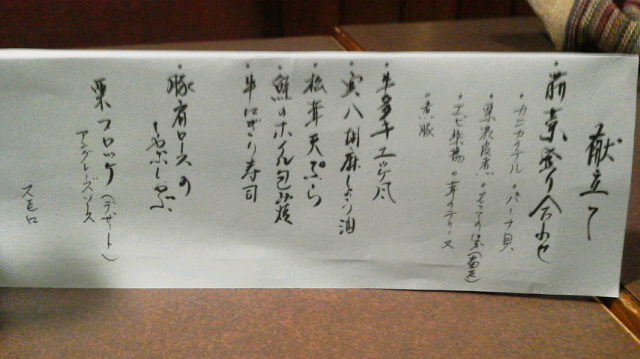 献立て
・前菜盛り合わせ
・カニカクテル ・バーナ貝
・栗渋皮煮
・エビ柴揚 ・茸のテリーヌ
・煮豚
・牛タタキユッケ風
・寅八胡麻しょうり油
・松茸天ぷら
・鮭のホイル包焼
・牛にぎり寿司
・豚肩ロースの
しゃぶしゃぶ
栗ブロッケ(デザート)
アングレーズソース